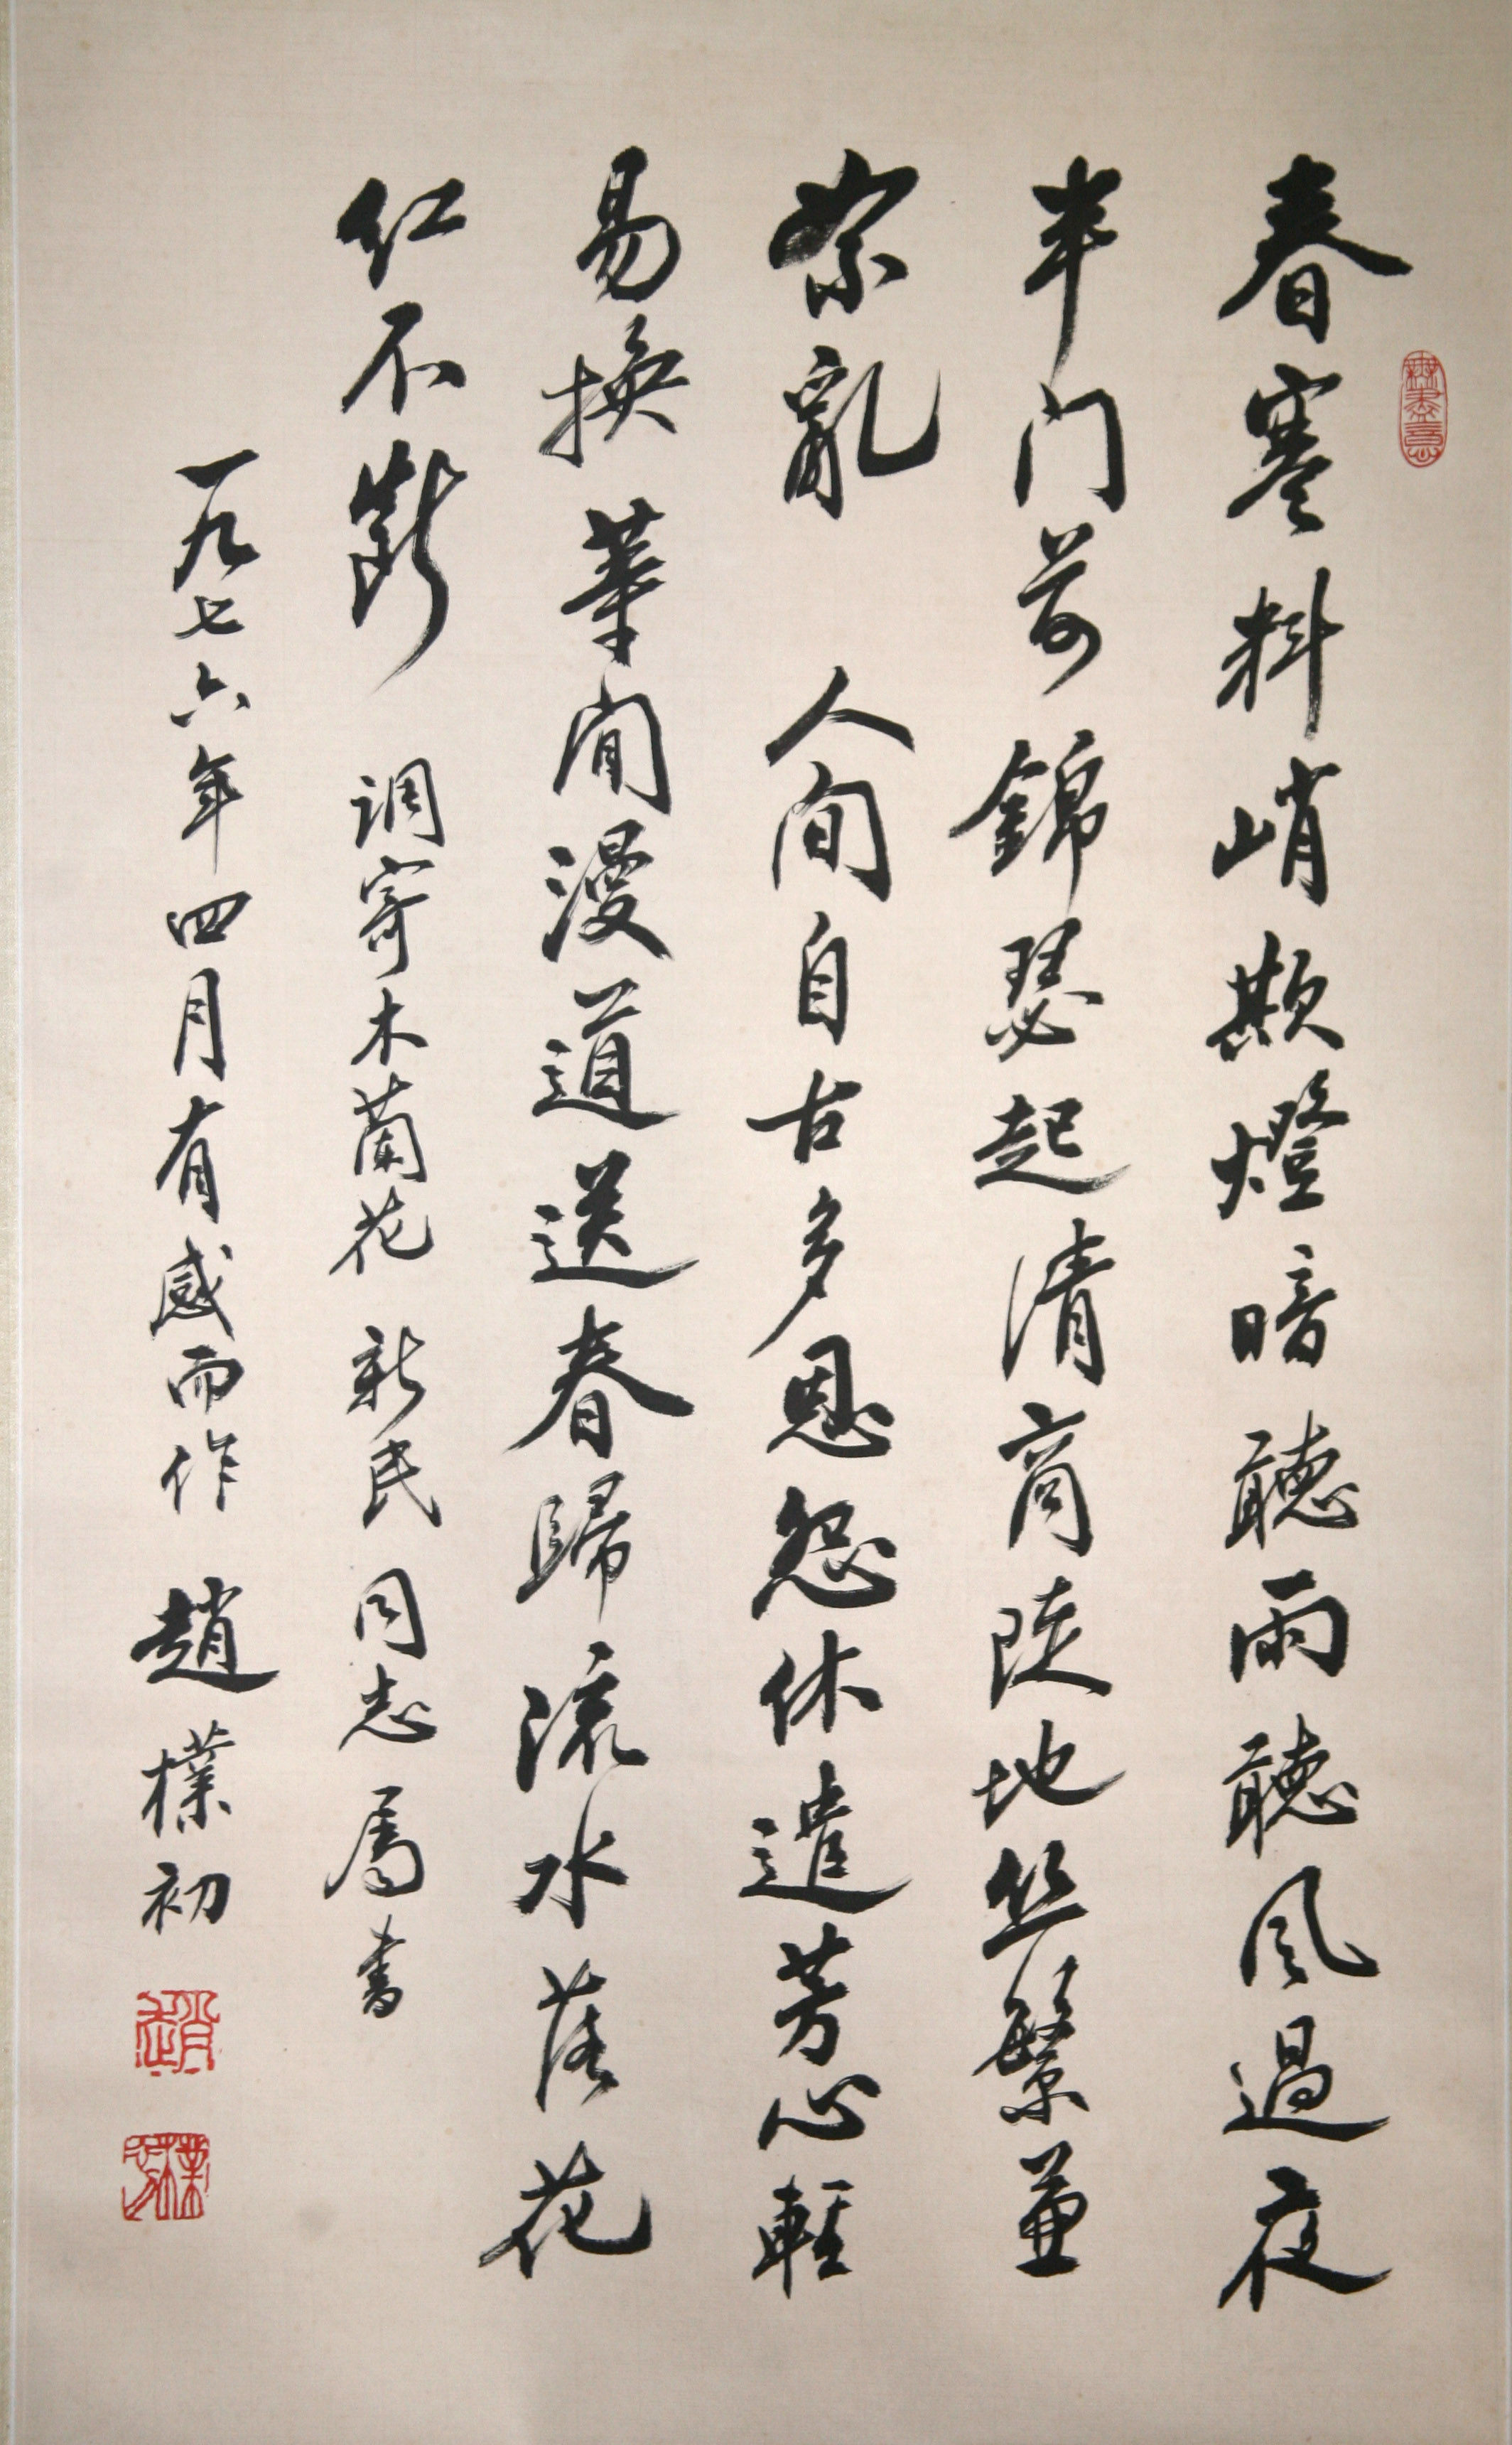 春寒料峭欺燈暗聽雨聽風過夜
半门前錦瑟起清商陡地丝繁兼
絮亂 人间自古多恩怨休遣芳心輕
易換等闲漫道送春歸流水落花
红不斷 调寄木蘭花 新民同志属書
一九七六年四月有感而作 趙樸初
無盡意
趙
樸初